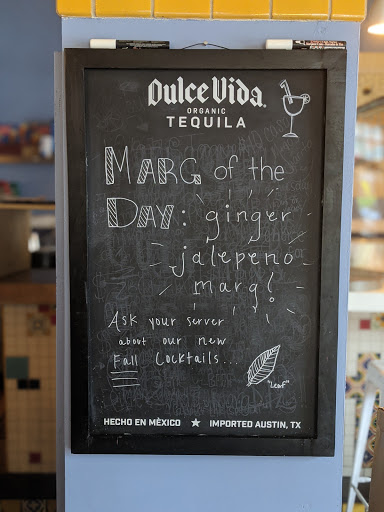 Dulce Vida
ORGANIC
TEQUILA
MARG of the
DAY: ginger
jalepeno
marg!
Ask your server
about our new
Fall Cocktails...
"Leaf"
HECHO EN MÉXICO ★ IMPORTED AUSTIN, TX